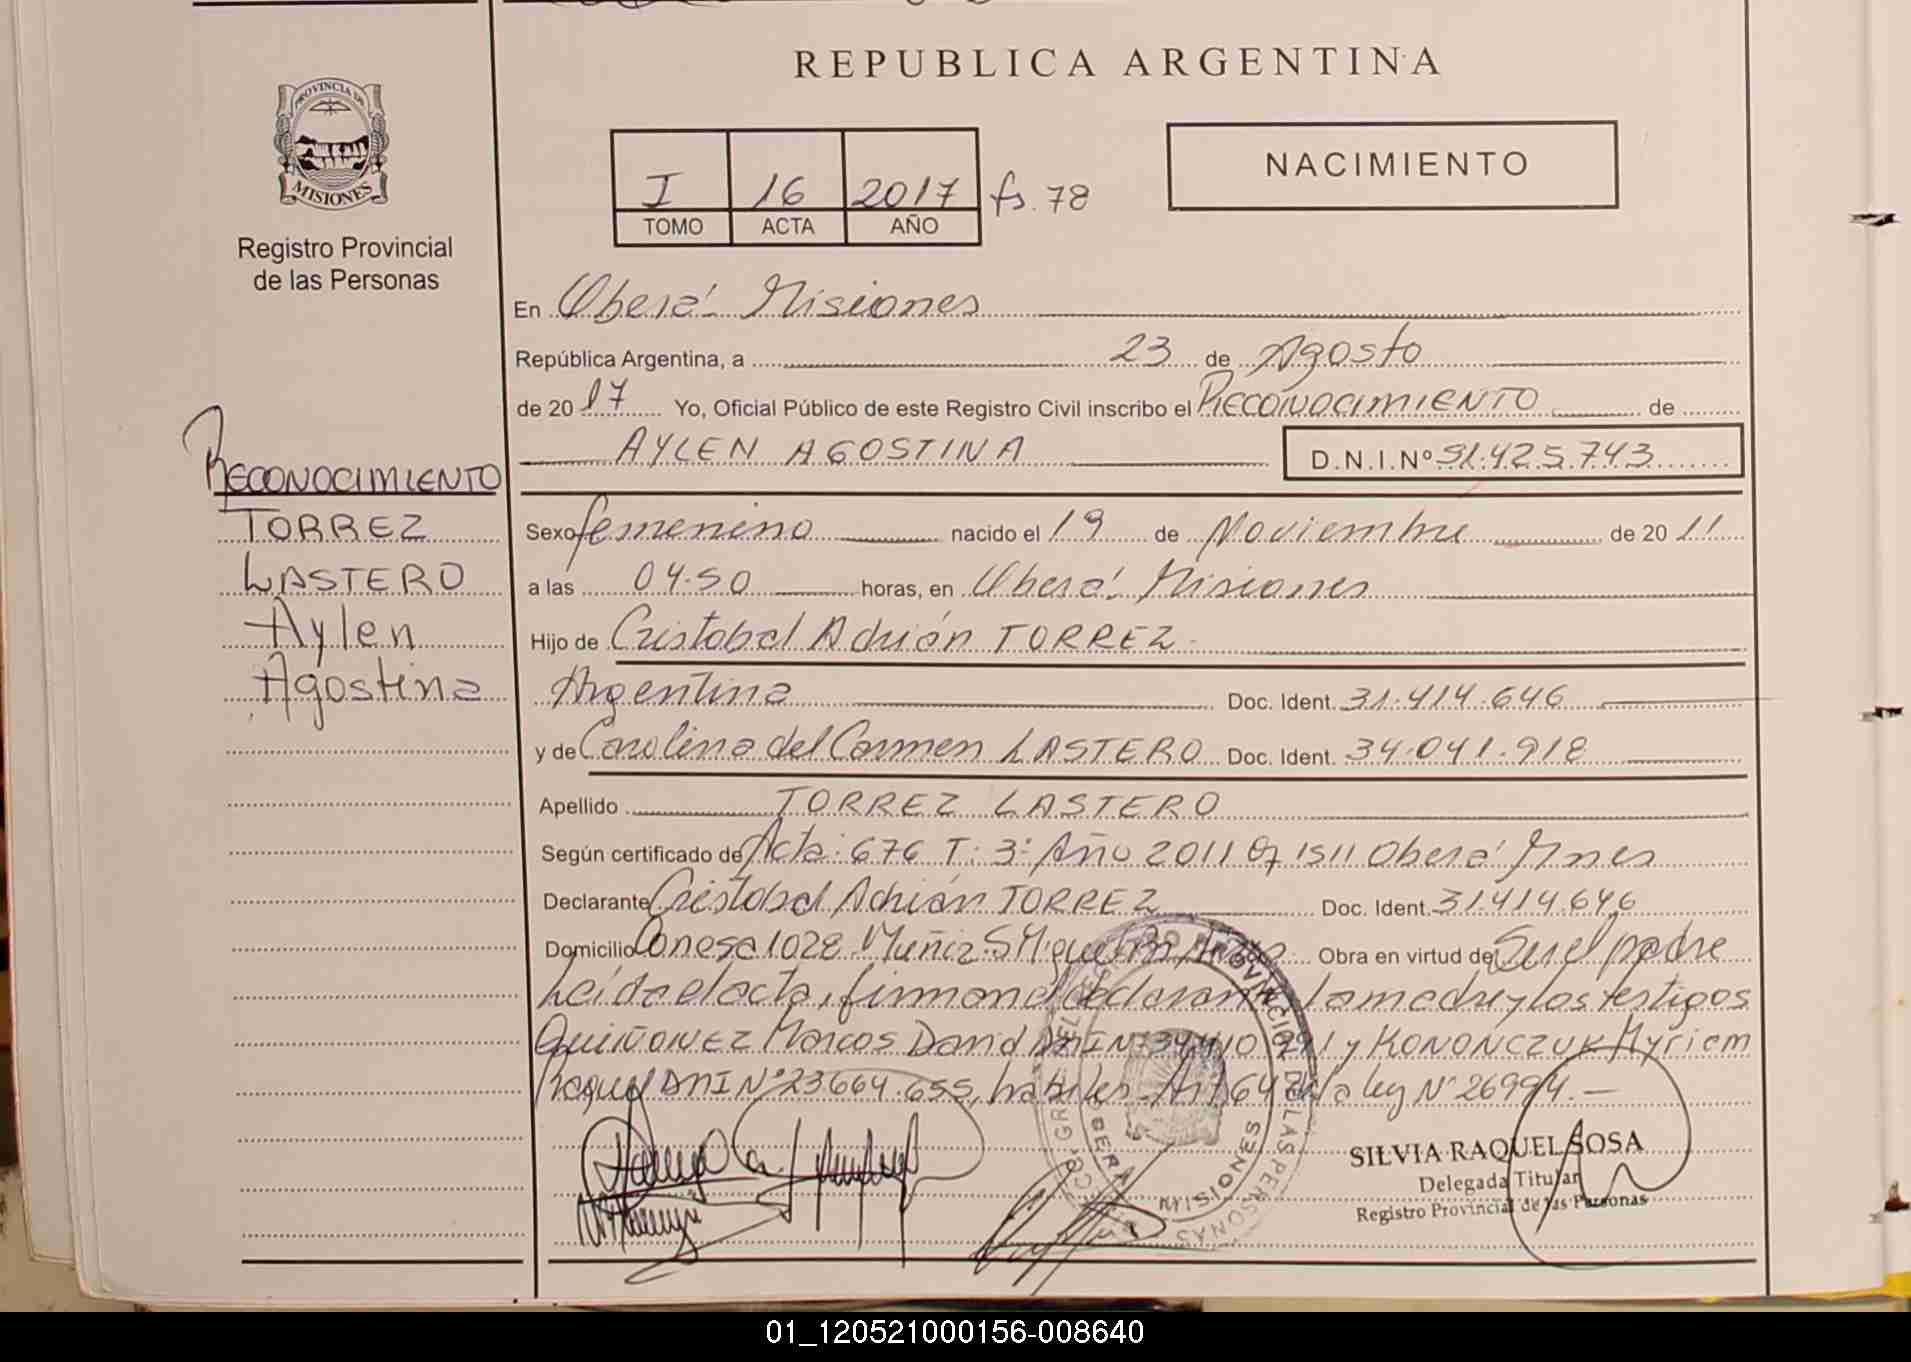 REPUBLICA ARGENTINA
PROVINCIA DE
MISIONES
Registro Provincial
de las Personas
NACIMIENTO
I 16 2017 fs. 78
TOMO ACTA AÑO
En Oberá - Misiones
República Argentina, a 23 de Agosto
de 20 17 Yo, Oficial Público de este Registro Civil inscribo el RECONOCIMIENTO de
AYLEN AGOSTINA D.N.I.Nº 51.425.743
RECONOCIMIENTO
TORREZ
LASTERO
Aylen
Agostina
Sexo femenino nacido el 19 de Noviembre de 20 11
a las 04.50 horas, en Oberá - Misiones
Hijo de Cristobal Adrián TORREZ -
Argentina Doc. Ident. 31.414.646
y de Carolina del Carmen LASTERO Doc. Ident. 34.041.918
Apellido TORREZ LASTERO
Según certificado de Acta: 676 T: 3: Año 2011 Of 1511 Oberá Mnes
Declarante Cristobal Adrián TORREZ Doc. Ident. 31.414.646
Domicilio Conesa 1028. Muñiz. S Miguel Obra en virtud de Ser el padre
Leída el acta, firman el declarante, la madre y los testigos
QUIÑONEZ Marcos David DNI Nº y KONONCZUK Myriam
Raquel DNI Nº 23664.655, habiles. Art 64 de la ley Nº 26994. -
REGISTRO PROVINCIAL DE LAS PERSONAS
OBERA
MISIONES
SILVIA RAQUEL SOSA
Delegada Titular
Registro Provincial de las Personas
01_120521000156-008640